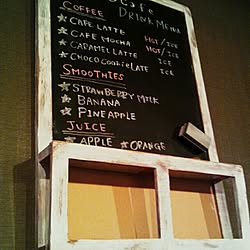 Cafe
COFFEE DRINK MENU
★CAFE LATTE HOT/ICE
★CAFE MOCHA HOT/ICE
★CARAMEL LATTE ICE
★CHOCO COOKIE LATE ICE
SMOOTHIES
★STRAWBERRY MILK
★BANANA
★PINEAPPLE
JUICE
★APPLE ★ORANGE